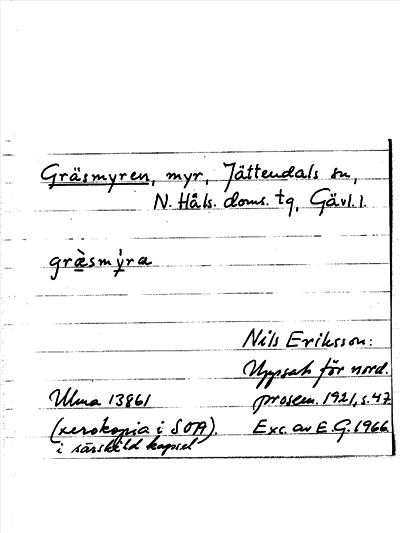 Gräsmyren, myr, Jättendals sn,
N. Håls. doms. tg, Gävl. l.
græ̀smýra
Nils Eriksson:
Uppsats för nord.
Ulma 13861 prosem. 1921, s. 47.
(xerokopia i SOA). Exc. av E.G. 1966.
i särskild kapsel